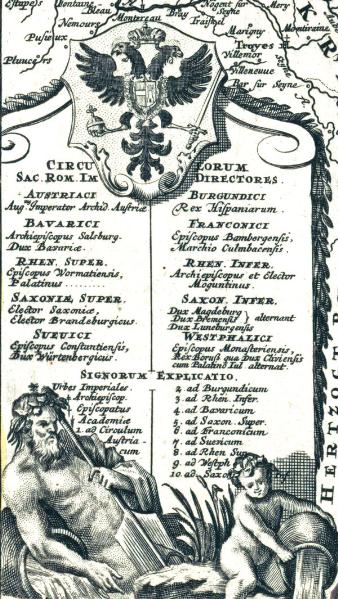 Nemours
Montereau
Bray
Nogent sur
Seyne
Traisnel
Mery
Marigny
Troyes
Montiramé
Puiseux
Villemor
Villeneuve
Pluviers
Bar sur Seyne
CIRCULORUM
SAC. ROM. IM DIRECTORES.
AUSTRIACI
Augmus Imperator Archid. Austriæ
BAVARICI
Archiepiscopus Salsburg.
Dux Bavariæ.
RHEN. SUPER.
Episcopus Wormatiensis,
Palatinus
SAXONIÆ SUPER.
Elector Saxoniæ,
Elector Brandeburgicus.
SUEVICI
Episcopus Constantiensis,
Dux Würtenbergicus.
BURGUNDICI
Rex Hispaniarum.
FRANCONICI
Episcopus Bambergensis,
Marchio Culmbacensis.
RHEN. INFER.
Archiepiscopus et Elector
Moguntinus
SAXON. INFER.
Dux Magdeburg
Dux Bremensis } alternant
Dux Luneburgensis
WESTPHALICI
Episcopus Monasteriensis,
Rex Boruss. qua Dux Clivensis
cum Palatino Iul alternat.
SIGNORUM EXPLICATIO.
Urbes Imperiales.
Archiepiscop.
Episcopatus
Academiæ
1. ad Circulum
Austria-
cum
2. ad Burgundicum
3. ad Rhen. Infer.
4. ad Bavaricum
5. ad Saxon. Super.
6. ad Franconicum
7. ad Suevicum
8. ad Rhen Sup
9. ad Westph
10. ad Saxo
HERTZOGT